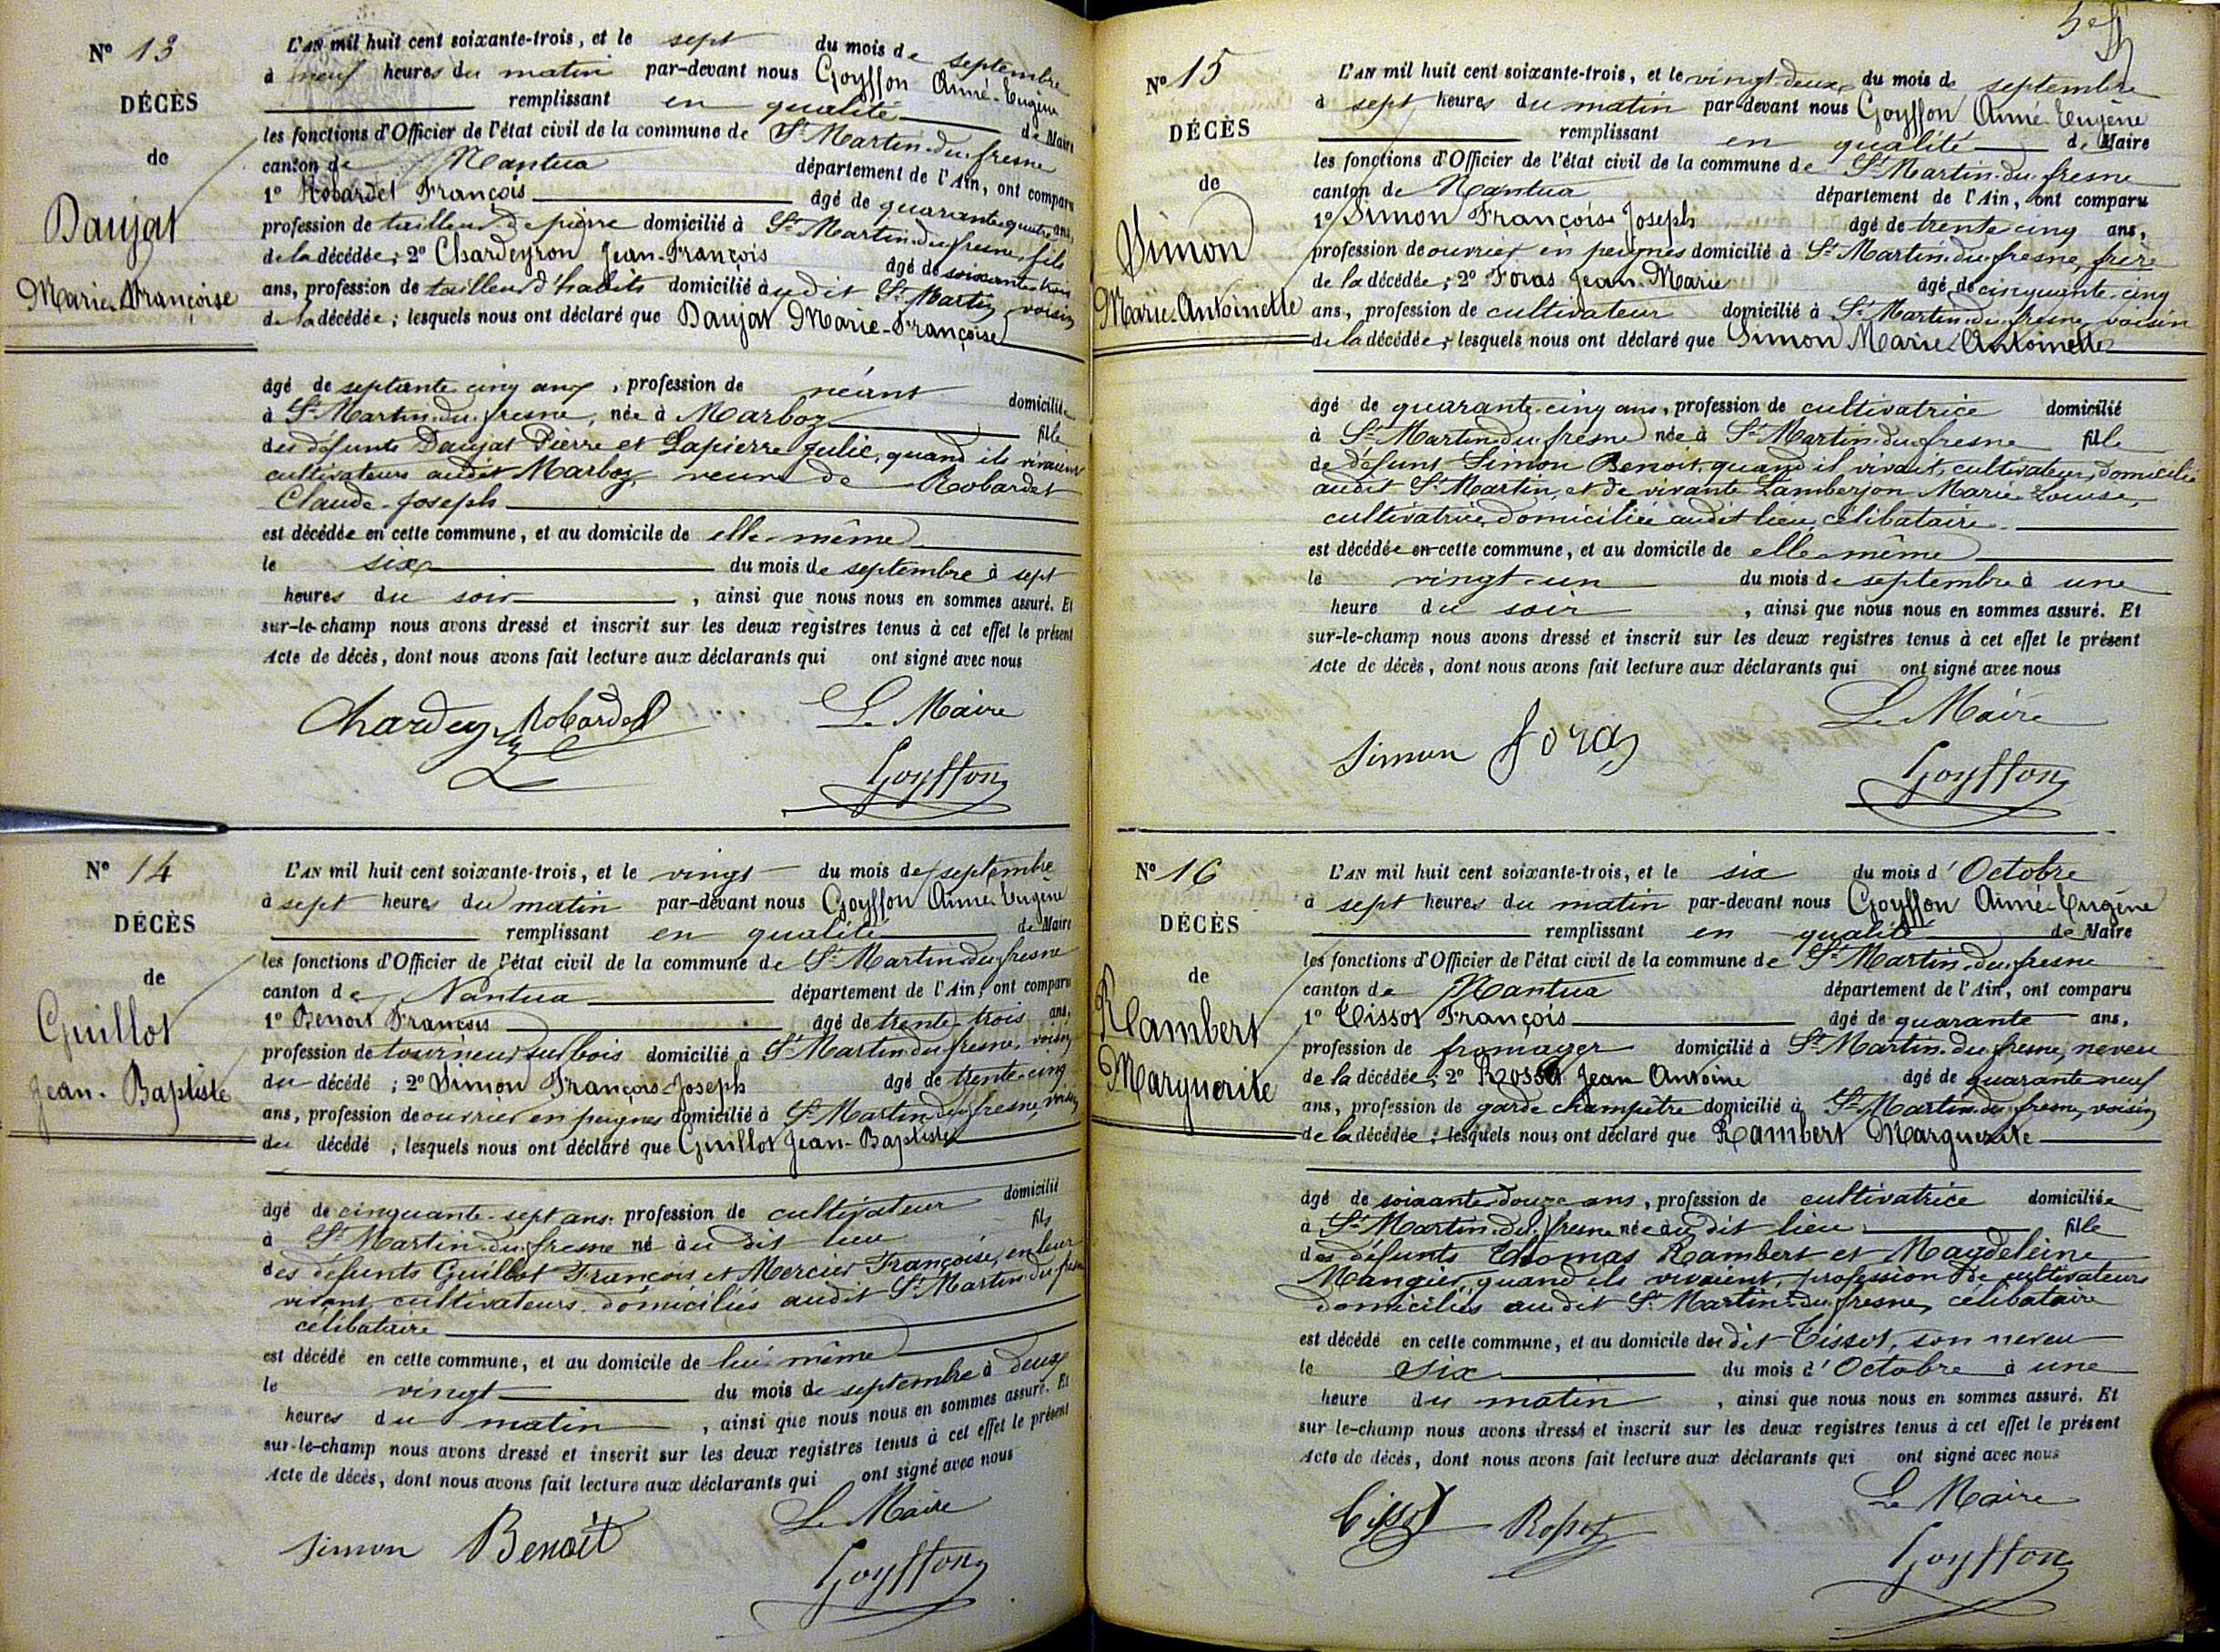 N° 13
DÉCÈS
de
Daujat
Marie-Françoise
L'AN mil huit cent soixante-trois, et le sept du mois de septembre
à neuf heures du matin par-devant nous Goyffon Aimé-Eugène
remplissant en qualité de Maire
les fonctions d'Officier de l'état civil de la commune de St Martin-du-fresne
canton de Nantua département de l'Ain, ont comparu
1° Robardet François âgé de quarante-quatre ans,
profession de tailleur de pierre domicilié à St Martin-du-fresne, fils
de la décédée; 2° Chardeyron Jean-François âgé de soixante-trois
ans, profession de tailleur d'habits domicilié audit St Martin, voisin
de la décédée; lesquels nous ont déclaré que Daujat Marie-Françoise
âgé de septante cinq ans, profession de néant domiciliée
à St Martin-du-fresne, née à Marboz fille
des défunts Daujat Pierre et Lapierre Julie, quand ils vivaient
cultivateurs audit Marboz, veuve de Robardet
Claude-Joseph
est décédée en cette commune, et au domicile de elle-même
le six du mois de septembre à sept
heures du soir, ainsi que nous nous en sommes assuré. Et
sur-le-champ nous avons dressé et inscrit sur les deux registres tenus à cet effet le présent
Acte de décès, dont nous avons fait lecture aux déclarants qui ont signé avec nous
Chardey Robardet Le Maire
Goyffon
N° 14
DÉCÈS
de
Guillot
Jean-Baptiste
L'AN mil huit cent soixante-trois, et le vingt du mois de septembre
à sept heures du matin par-devant nous Goyffon Aimé-Eugène
remplissant en qualité de Maire
les fonctions d'Officier de l'état civil de la commune de St Martin-du-fresne
canton de Nantua département de l'Ain, ont comparu
1° Benoit François âgé de trente-trois ans,
profession de tourneur sur bois domicilié à St Martin-du-fresne, voisin
du décédé; 2° Simon François-Joseph âgé de trente-cinq
ans, profession de ouvrier en peignes domicilié à St Martin-du-fresne, voisin
du décédé, lesquels nous ont déclaré que Guillot Jean-Baptiste
âgé de cinquante-sept ans, profession de cultivateur domicilié
à St Martin-du-fresne né au dit lieu fils
des défunts Guillot François et Mercier Françoise, en leur
vivant cultivateurs domiciliés audit St Martin-du-fresne
célibataire
est décédé en cette commune, et au domicile de lui-même
le vingt du mois de septembre à deux
heures du matin, ainsi que nous nous en sommes assuré. Et
sur-le-champ nous avons dressé et inscrit sur les deux registres tenus à cet effet le présent
Acte de décès, dont nous avons fait lecture aux déclarants qui ont signé avec nous
Simon Benoit Le Maire
Goyffon
N° 15
DÉCÈS
de
Simon
Marie-Antoinette
L'AN mil huit cent soixante-trois, et le vingt-deux du mois de septembre
à sept heures du matin par-devant nous Goyffon Aimé-Eugène
remplissant en qualité de Maire
les fonctions d'Officier de l'état civil de la commune de St Martin-du-fresne
canton de Nantua département de l'Ain, ont comparu
1° Simon François-Joseph âgé de trente cinq ans,
profession de ouvrier en peignes domicilié à St Martin-du-fresne, frère
de la décédée; 2° Foras Jean-Marie âgé de cinquante-cinq
ans, profession de cultivateur domicilié à St Martin-du-fresne, voisin
de la décédée; lesquels nous ont déclaré que Simon Marie-Antoinette
âgé de quarante-cinq ans, profession de cultivatrice domicilié
à St Martin-du-fresne née à St Martin-du-fresne fille
de défunt Simon Benoit, quand il vivait, cultivateur, domicilié
audit St Martin, et de vivante Lamberjon Marie-Louise,
cultivatrice domiciliée audit lieu, célibataire
est décédée en cette commune, et au domicile de elle-même
le vingt-un du mois de septembre à une
heure du soir, ainsi que nous nous en sommes assuré. Et
sur-le-champ nous avons dressé et inscrit sur les deux registres tenus à cet effet le présent
Acte de décès, dont nous avons fait lecture aux déclarants qui ont signé avec nous
Le Maire
Simon foras
Goyffon
N° 16
DÉCÈS
de
Rambert
Marguerite
L'AN mil huit cent soixante-trois, et le six du mois d'Octobre
à sept heures du matin par-devant nous Goyffon Aimé-Eugène
remplissant en qualité de Maire
les fonctions d'Officier de l'état civil de la commune de St Martin-du-fresne
canton de Nantua département de l'Ain, ont comparu
1° Tissot François âgé de quarante ans,
profession de fromager domicilié à St Martin-du-fresne, neveu
de la décédée; 2° Rosset Jean Antoine âgé de quarante neuf
ans, profession de garde champêtre domicilié à St Martin-du-fresne, voisin
de la décédée; lesquels nous ont déclaré que Rambert Marguerite
âgé de soixante-douze ans, profession de cultivatrice domiciliée
à St Martin-du-fresne née au dit lieu fille
des défunts Thomas Rambert et Magdeleine
Mangier, quand ils vivaient, profession de cultivateurs
domiciliés audit St Martin-du-fresne, célibataire
est décédé en cette commune, et au domicile du dit Tissot, son neveu
le six du mois d'Octobre à une
heure du matin, ainsi que nous nous en sommes assuré. Et
sur-le-champ nous avons dressé et inscrit sur les deux registres tenus à cet effet le présent
Acte de décès, dont nous avons fait lecture aux déclarants qui ont signé avec nous
Tissot Rosset Le Maire
Goyffon